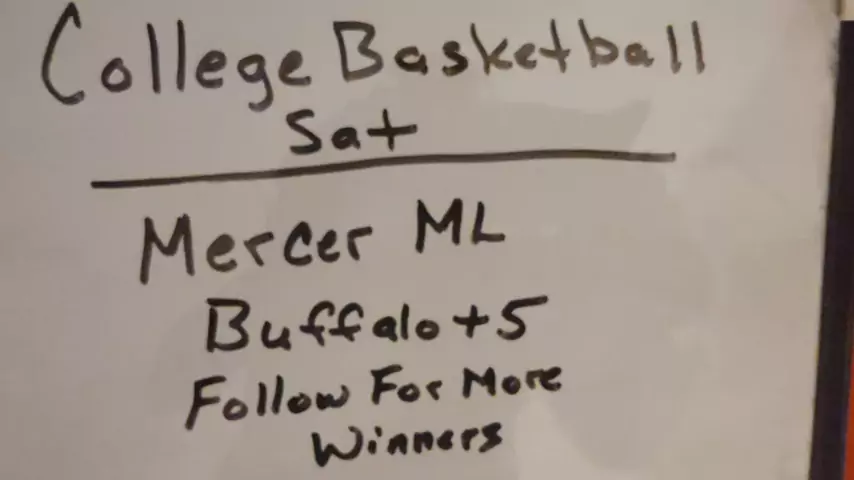 College Basketball
Sat
Mercer ML
Buffalo +5
Follow For More
Winners